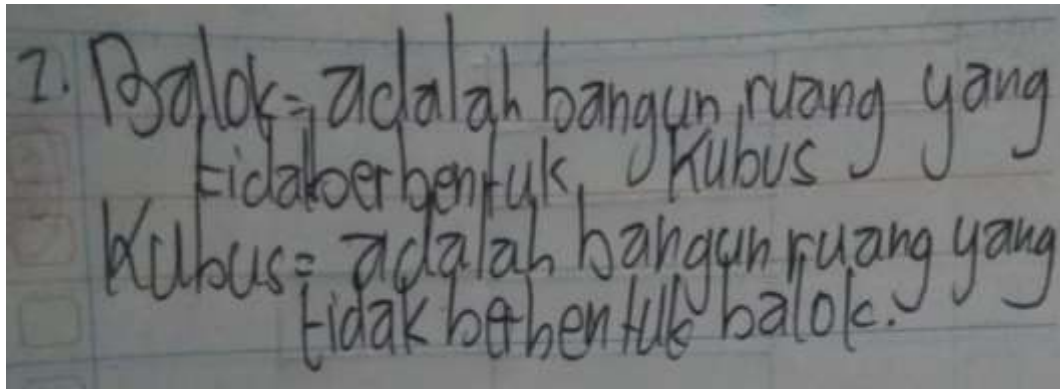 1. Balok = adalah bangun ruang yang
tidak berbentuk kubus
Kubus = adalah bangun ruang yang
tidak berbentuk balok.